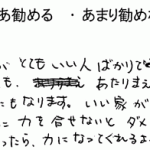 あ勧める ・あまり勧め
が とても いい人 ばかりで
も、 あたりまえ
にもなります。 いい家が
に 力を 合せないと ダメ
ったら、力に なってくれるよ